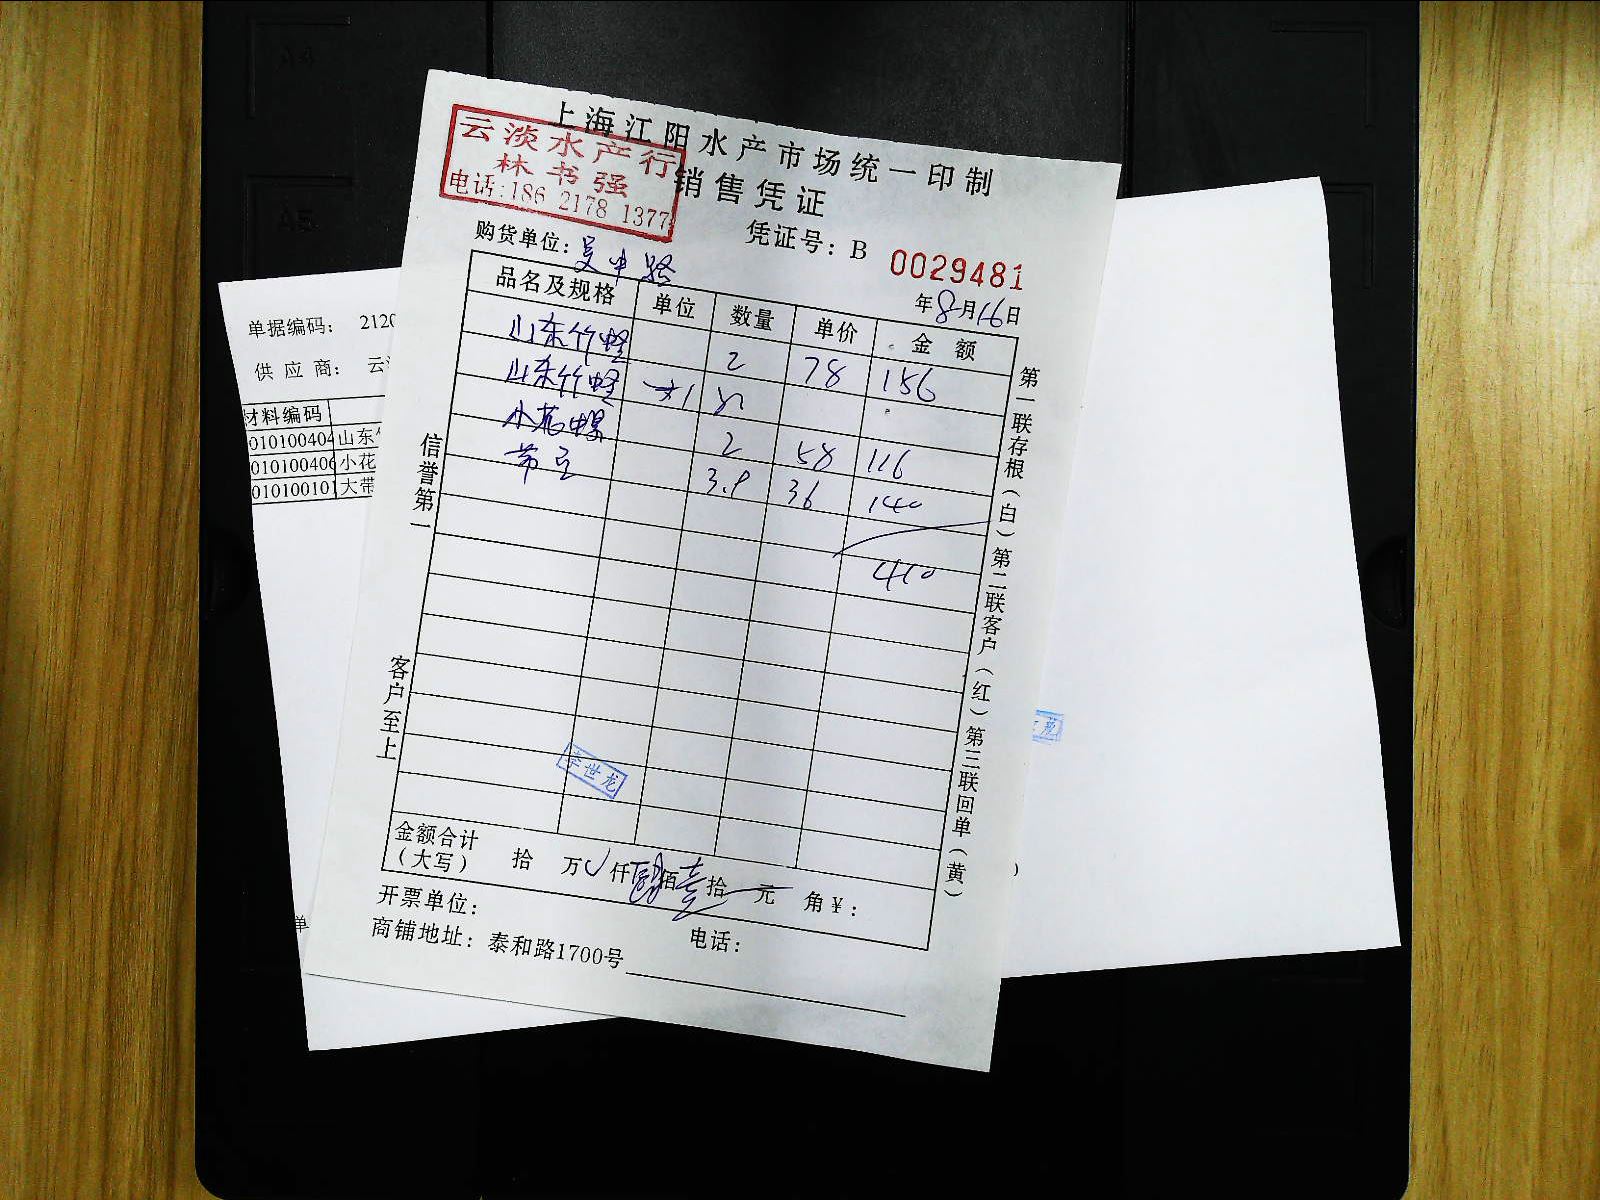 上海江阳水产市场统一印制
销售凭证
云淡水产行
林书强
电话:186 2178 1377
凭证号: B 0029481
购货单位: 吴中路
年8月16日
品名及规格 单位 数量 单价 金额
山东竹蛏 2 78 156
山东竹蛏
小花螺 2 58 116
3.9 36 140
410
信誉第一
客户至上
第一联存根(白) 第二联客户(红) 第三联回单(黄)
李世龙
金额合计
(大写) 拾 万 仟 肆佰壹拾 元 角¥:
开票单位:
电话:
商铺地址: 泰和路1700号
单据编码: 212
供 应 商: 云
材料编码
010100404 山东
010100406 小花
010100101 大带
单